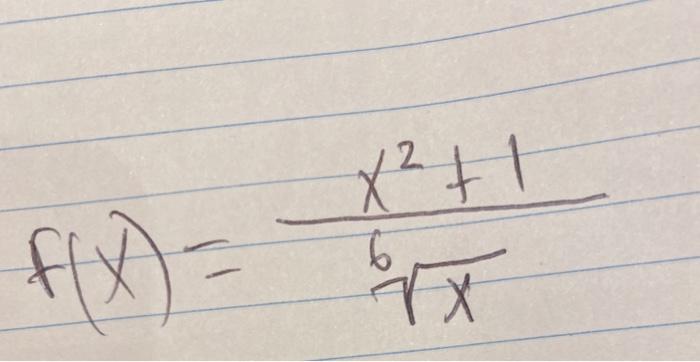 f(x) = \frac{x^2 + 1}{\sqrt[6]{x}}